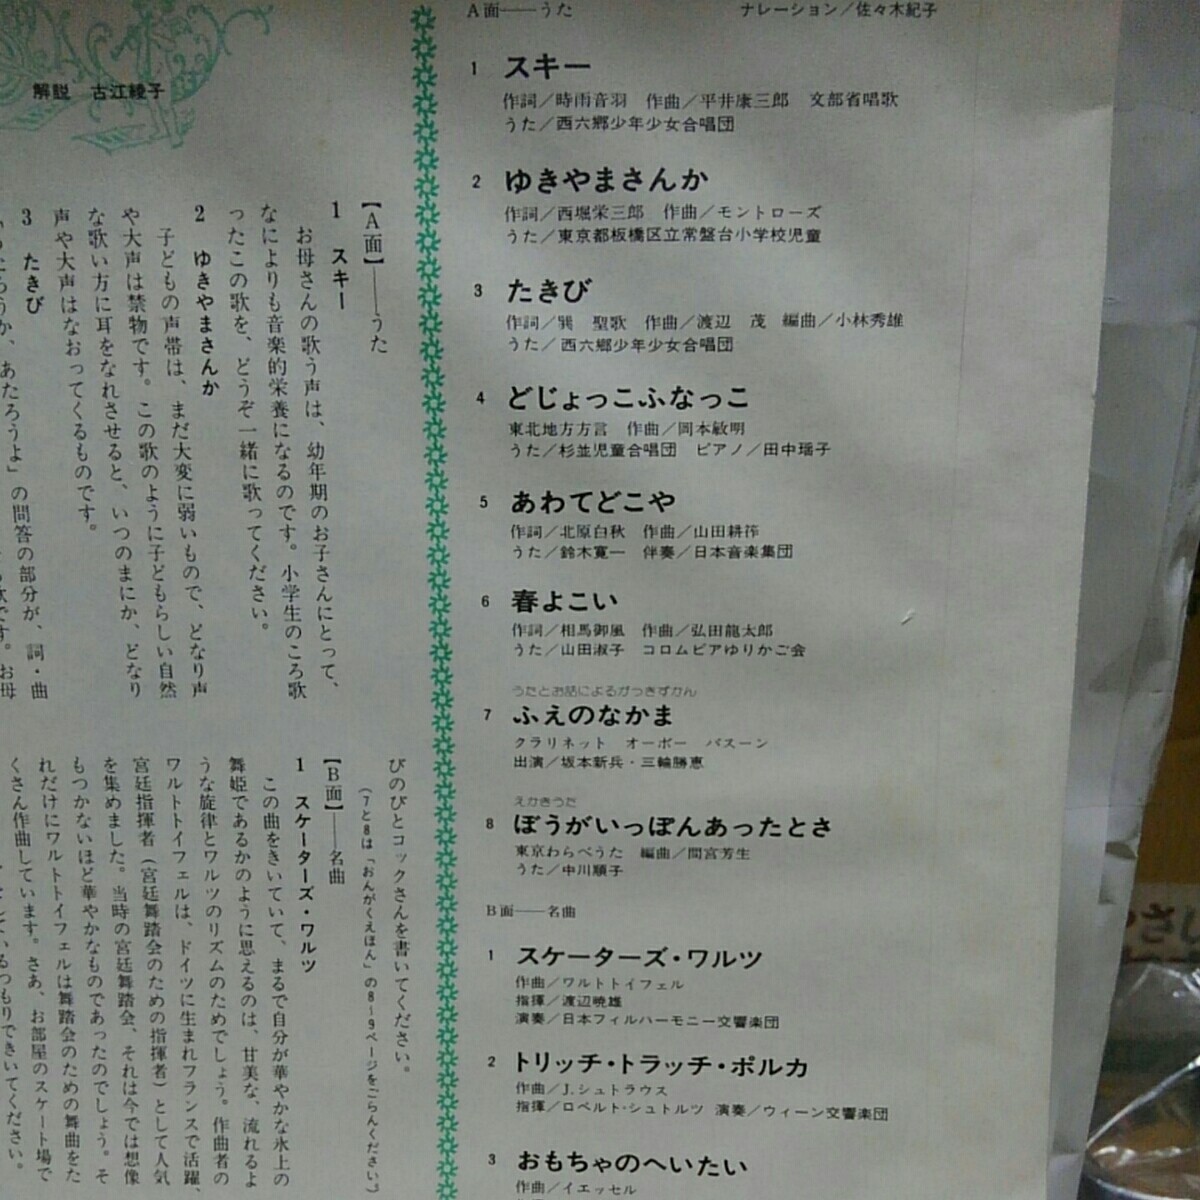 A面──うた　ナレーション／佐々木紀子
1 スキー
作詞／時雨音羽　作曲／平井康三郎　文部省唱歌
うた／西六郷少年少女合唱団
2 ゆきやまさんか
作詞／西堀栄三郎　作曲／モントローズ
うた／東京都板橋区立常盤台小学校児童
3 たきび
作詞／巽　聖歌　作曲／渡辺　茂　編曲／小林秀雄
うた／西六郷少年少女合唱団
4 どじょっこふなっこ
東北地方方言　作曲／岡本敏明
うた／杉並児童合唱団　ピアノ／田中瑶子
5 あわてどこや
作詞／北原白秋　作曲／山田耕筰
うた／鈴木寛一　伴奏／日本音楽集団
6 春よこい
作詞／相馬御風　作曲／弘田龍太郎
うた／山田淑子　コロムビアゆりかご会
うたとお話によるがっきずかん
7 ふえのなかま
クラリネット　オーボー　バスーン
出演／坂本新兵・三輪勝恵
えかきうた
8 ぼうがいっぽんあったとさ
東京わらべうた　編曲／間宮芳生
うた／中川順子
B面──名曲
1 スケーターズ・ワルツ
作曲／ワルトトイフェル
指揮／渡辺暁雄
演奏／日本フィルハーモニー交響楽団
2 トリッチ・トラッチ・ポルカ
作曲／J.シュトラウス
指揮／ロベルト・シュトルツ　演奏／ウィーン交響楽団
3 おもちゃのへいたい
作曲／イエッセル
解説　古江綾子
【A面】──うた
1　スキー
お母さんの歌う声は、幼年期のお子さんにとって、
なによりも音楽的栄養になるのです。小学生のころ歌
ったこの歌を、どうぞ一緒に歌ってください。
2　ゆきやまさんか
子どもの声帯は、まだ大変に弱いもので、どなり声
や大声は禁物です。この歌のように子どもらしい自然
な歌い方に耳をなれさせると、いつのまにか、どなり
声や大声はなおってくるものです。
3　たきび
あたろうよ」の問答の部分が、詞・曲
びのびとコックさんを書いてください。
（7と8は「おんがくえほん」の8〜9ページをごらんください）
【B面】──名曲
1　スケーターズ・ワルツ
この曲をきいていて、まるで自分が華やかな氷上の
舞姫であるかのように思えるのは、甘美な、流れるよ
うな旋律とワルツのリズムのためでしょう。作曲者の
ワルトトイフェルは、ドイツに生まれフランスで活躍、
宮廷指揮者（宮廷舞踏会のための指揮者）として人気
を集めました。当時の宮廷舞踏会、それは今では想像
もつかないほど華やかなものであったのでしょう。そ
れだけにワルトトイフェルは舞踏会のための舞曲をた
くさん作曲しています。さあ、お部屋のスケート場で
いるつもりできいてください。